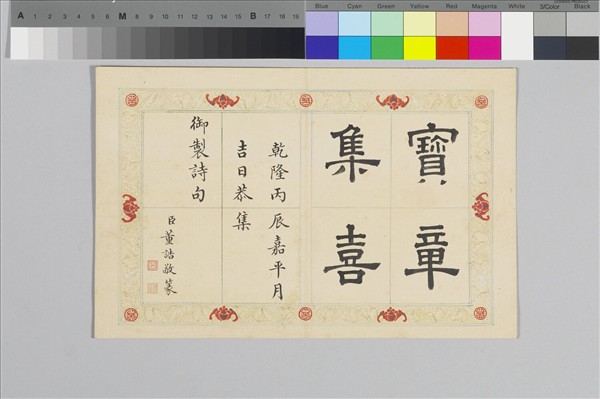 A 1 2 3 4 5 6 M 8 9 10 11 12 13 14 15 B 17 18 19
Blue Cyan Green Yellow Red Magenta White 3/Color Black
寶章
集喜
乾隆丙辰嘉平月
吉日恭集
御製詩句
臣董誥敬篆